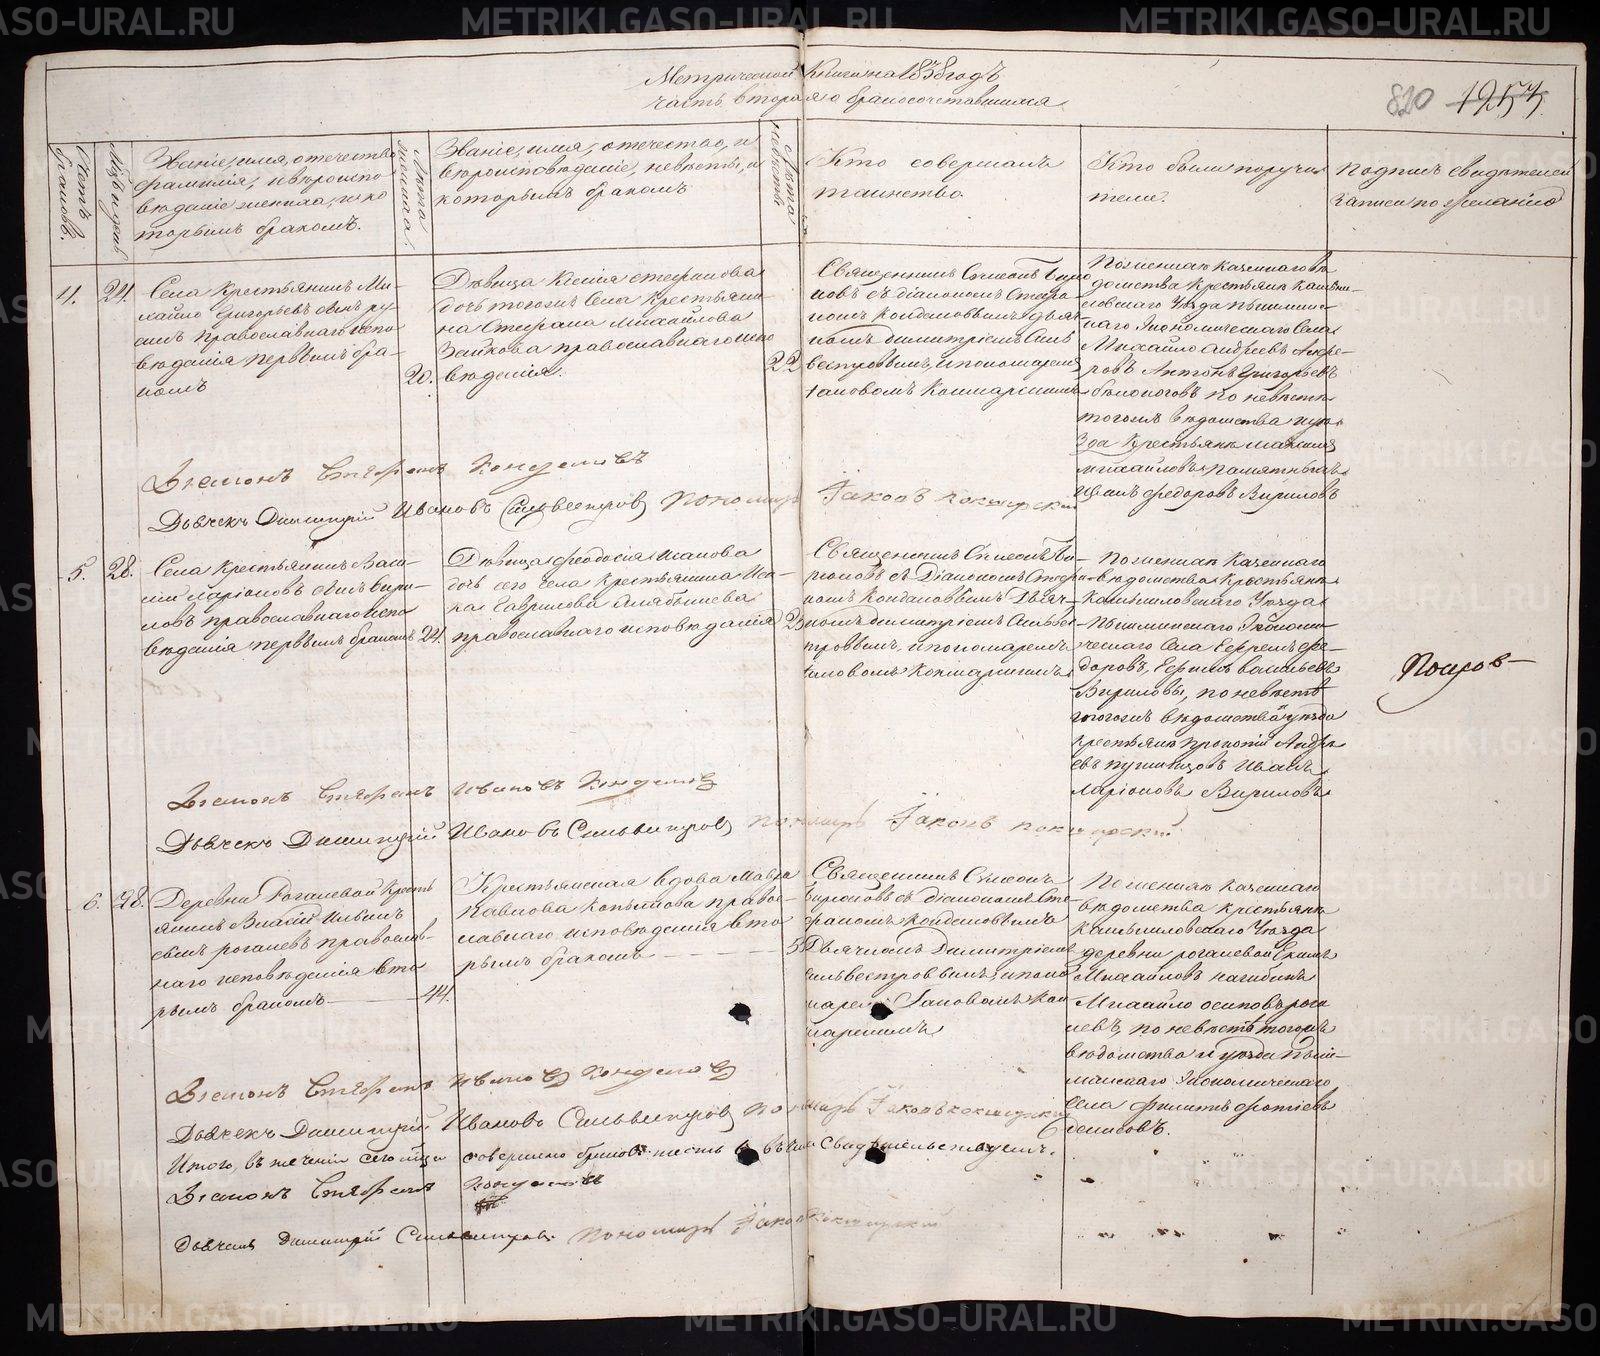 Метрической Книги на 1838 годъ
часть вторая о бракосочетавшихся
820 1253
Счетъ браковъ.
Мѣсяцъ и день
Званіе, имя, отечество
фамилія, и вѣроиспо-
вѣданіе жениха, и ко
торымъ бракомъ.
Лѣта жениха.
Званіе, имя, отечество, и
вѣроисповѣданіе, невѣсты, и
которымъ бракомъ
Лѣта невѣсты
Кто совершалъ
таинство.
Кто были поручи
тели.
Подпись свидѣтелей
записи по желанію
4. 24.
Села Крестьянинъ Ми-
хайло Григорьевъ
православнаго испо
вѣданія первымъ бра-
комъ
20.
Дѣвица Ксенія Стефанова
дочь тогожъ Села Крестьяни-
на Стефана Михайлова
Зайкова православнаго испо
вѣданія.
22
Священникъ Симеонъ Бирю
ковъ съ діакономъ Стефа-
номъ Кондаковымъ дьяч-
комъ Димитріемъ Силь
вестровымъ, и пономаремъ
Іаковомъ Кокшарскимъ
Поженихѣ Казеннаго вѣ
домства Крестьяне Камыш-
ловскаго Уѣзда Пышмин-
скаго Экономическаго Села
Михайло Андреевъ
Антонъ Григорьевъ
Бѣлоноговъ по невѣстѣ
тогожъ вѣдомства и уѣ-
зда Крестьяне
Михайловъ
Иванъ Федоровъ Вириловъ
Діаконъ Стефанъ Кондаковъ
Дьячекъ Димитрій Ивановъ Сильвестровъ Пономарь Іаковъ Кокшарскій
5. 28.
Села Крестьянинъ Васи-
лій Ларіоновъ сынъ Вири-
ловъ православнаго испо
вѣданія первымъ бракомъ 24.
Дѣвица Феодосія Исакова
дочь сего Села Крестьянина Иса-
ка Гаврилова Алябышева
православнаго исповѣданія
Священникъ Симеонъ Би-
рюковъ съ Діакономъ Стефа-
номъ Кондаковымъ Дьяч-
комъ Димитріемъ Сильве-
стровымъ, и пономаремъ
Іаковомъ Кокшарскимъ
Поженихѣ Казеннаго
вѣдомства Крестьяне
Камышловскаго Уѣзда
Пышминскаго Экономи-
ческаго Села Ефремъ Фе-
доровъ, Ефимъ Васильевъ
Вириловы, по невѣстѣ
тогожъ вѣдомства и уѣзда
Крестьяне Прокопій Андре
евъ Иванъ
Ларіоновъ Вириловъ
Діаконъ Стефанъ Ивановъ Кондаковъ
Дьячекъ Димитрій Ивановъ Сильвестровъ Пономарь Іаковъ Кокшарскій
6. 28.
Деревни Рогалевой Кресть
янинъ Ильинъ
сынъ Рогалевъ православ-
наго исповѣданія вто
рымъ бракомъ 44.
Крестьянская вдова Мавра
Павлова Копылова право-
славнаго исповѣданія вто
рымъ бракомъ
Священникъ Симеонъ
Бирюковъ съ діакономъ Сте-
фаномъ Кондаковымъ
Дьячкомъ Димитріемъ
Сильвестровымъ, и поно
маремъ Іаковомъ Кок
шарскимъ
Поженихѣ Казеннаго
вѣдомства крестьяне
Камышловскаго Уѣзда
деревни Рогалевой
Михайловъ Нагибинъ
Михайло Осиповъ Рога
левъ, по невѣстѣ тогожъ
вѣдомства и уѣзда Пыш-
минскаго Экономическаго
Села Филипъ Фотіевъ
Денисовъ.
Діаконъ Стефанъ Ивановъ Кондаковъ
Дьячекъ Димитрій Ивановъ Сильвестровъ Пономарь Іаковъ Кокшарскій
Итого, въ теченіи сего мѣсяца совершено браковъ шесть 6 въ чемъ Свидѣтельствуемъ.
Діаконъ Стефанъ Кондаковъ
Дьячекъ Димитрій Сильвестровъ Пономарь Іаковъ Кокшарскій
METRIKI.GASO-URAL.RU